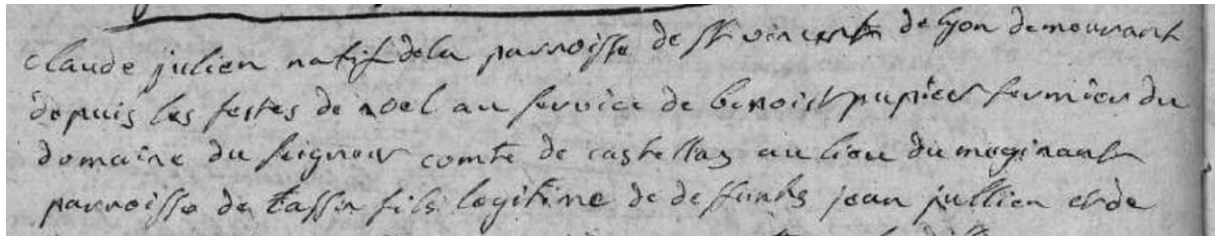 claude julien natif de la parroisse de st vincent de lyon demeurant
depuis les festes de noel au service de benoist pupier fermier du
domaine du seigneur comte de castellas au lieu du meginant
parroisse de tassin fils legitime de deffunts jean jullien et de